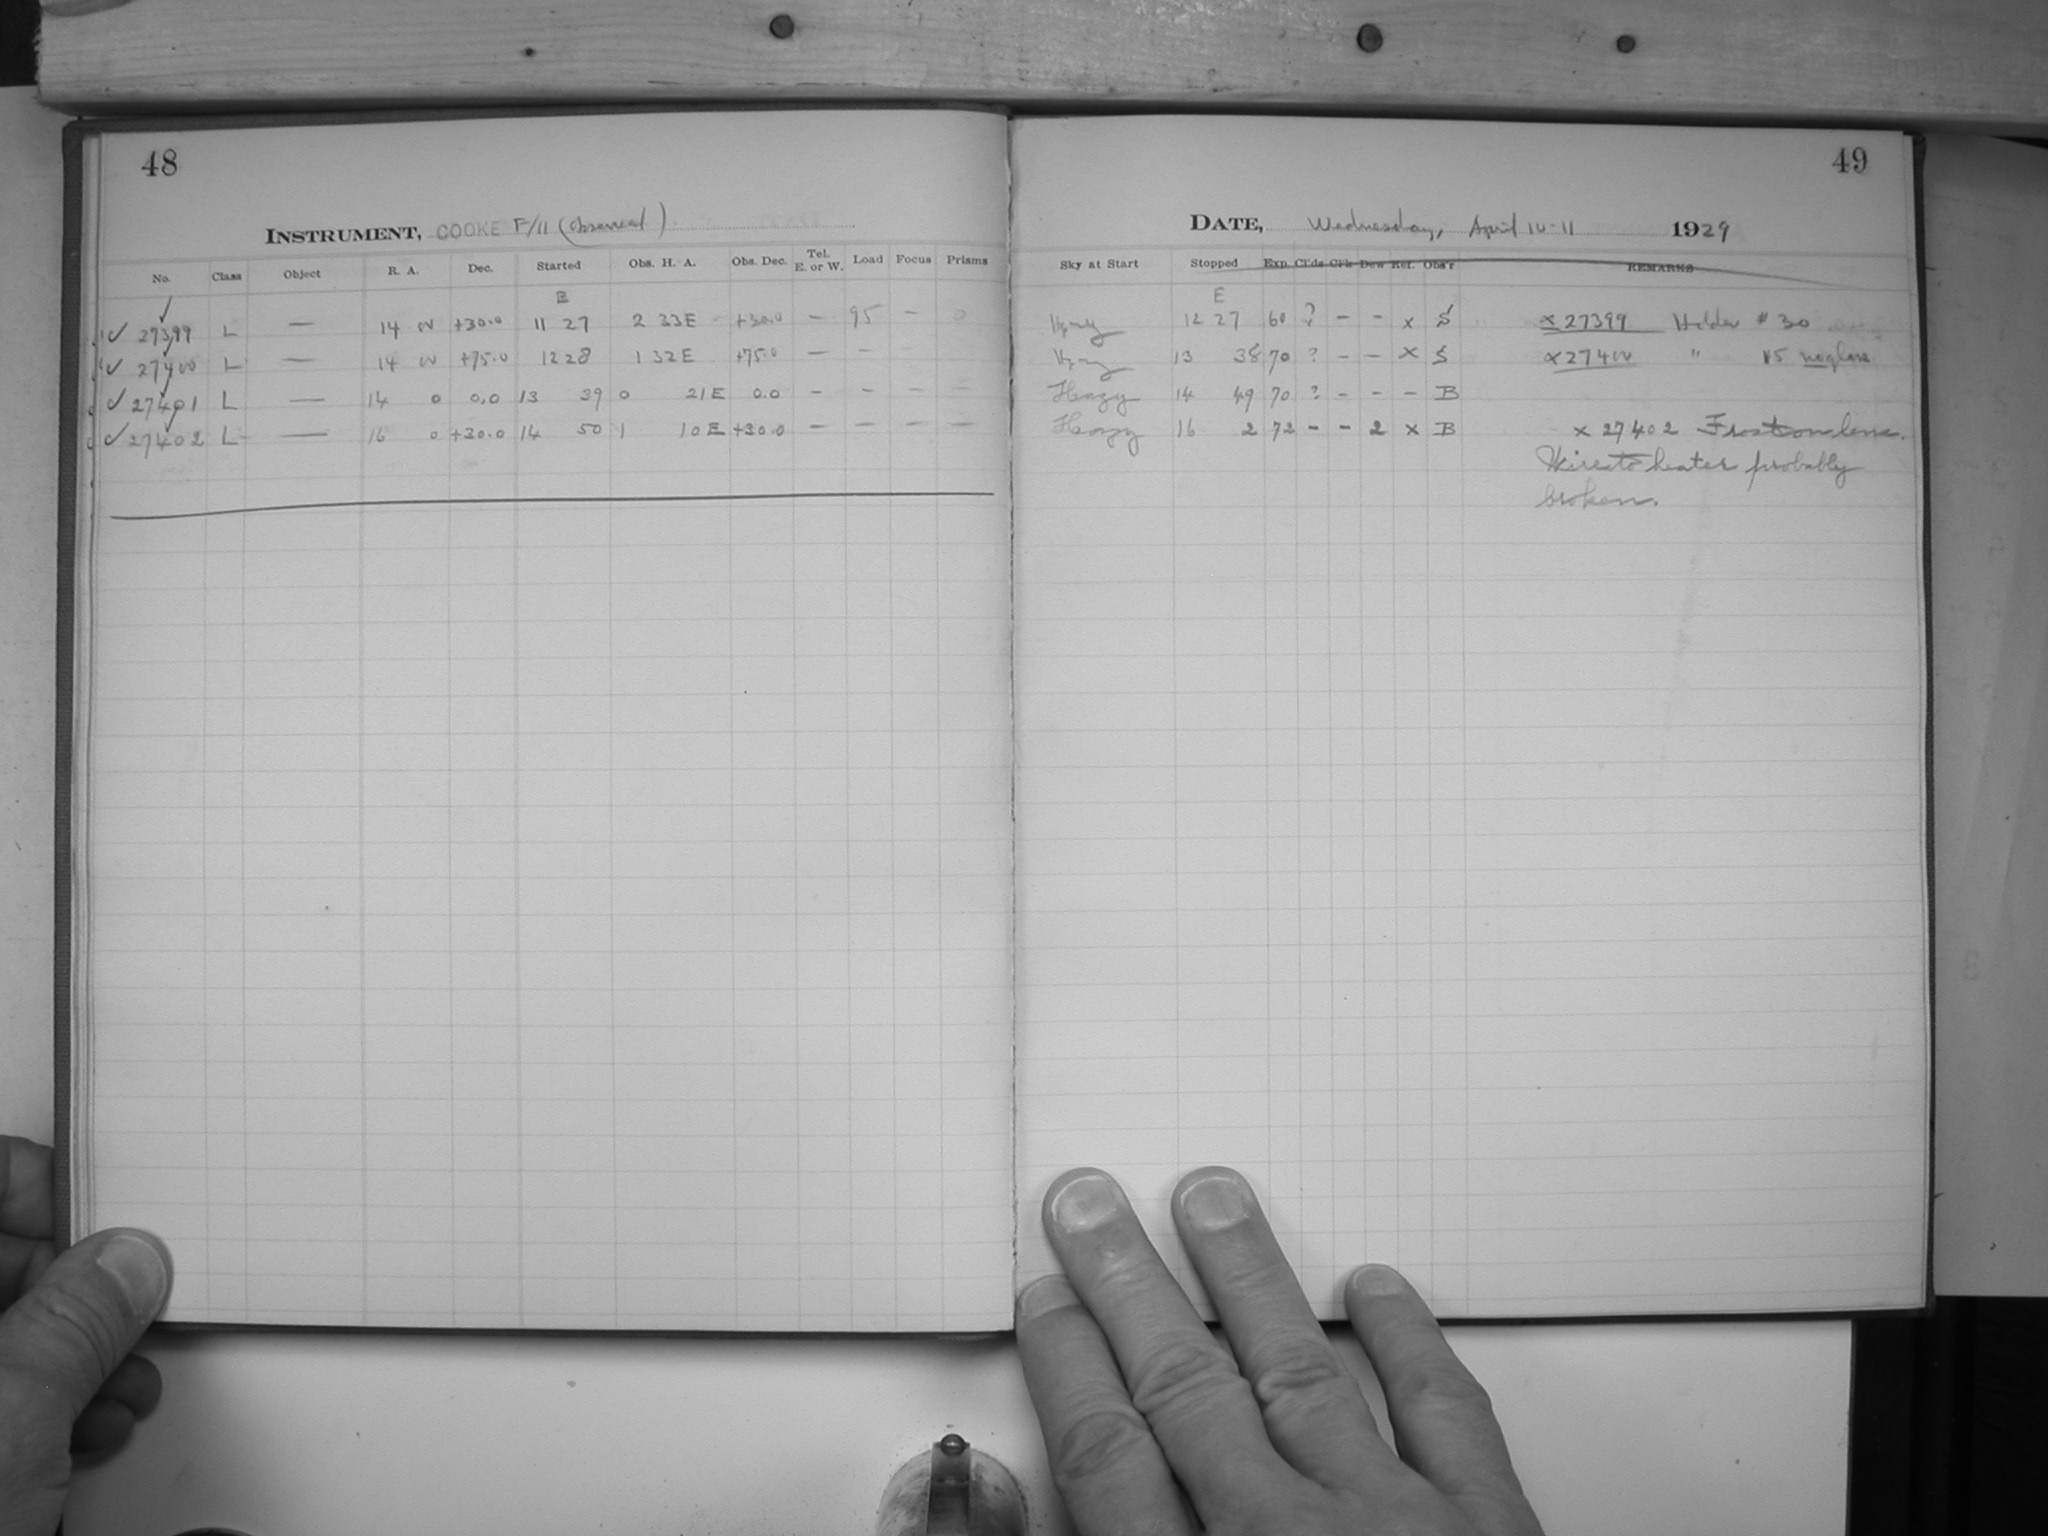 48
INSTRUMENT, COOKE F/11 (Observed)
No. Class Object R. A. Dec. Started Obs. H. A. Obs. Dec. Tel. E. or W. Load Focus Prisms
E
✓ 27399 L — 14 00 +30.0 11 27 2 33E +30.0 — 95 — 0
✓ 27400 L — 14 00 +75.0 12 28 1 32E +75.0 — — — —
✓ 27401 L — 14 0 0.0 13 39 0 21E 0.0 — — — —
✓ 27402 L — 16 0 +30.0 14 50 1 10E +30.0 — — — —
49
DATE, Wednesday, April 10-11 1929
Sky at Start Stopped Exp. Cl'ds Cl'k Dew Ref. Obs'r REMARKS
E
Hazy 12 27 60 ? – – x S x 27399 Holder # 30
Hazy 13 38 70 ? – – x S x 27400 " 15 no glass
Hazy 14 49 70 ? – – – B
Hazy 16 2 72 – – 2 x B x 27402 Frost on lens.
Wires to heater probably
broken.